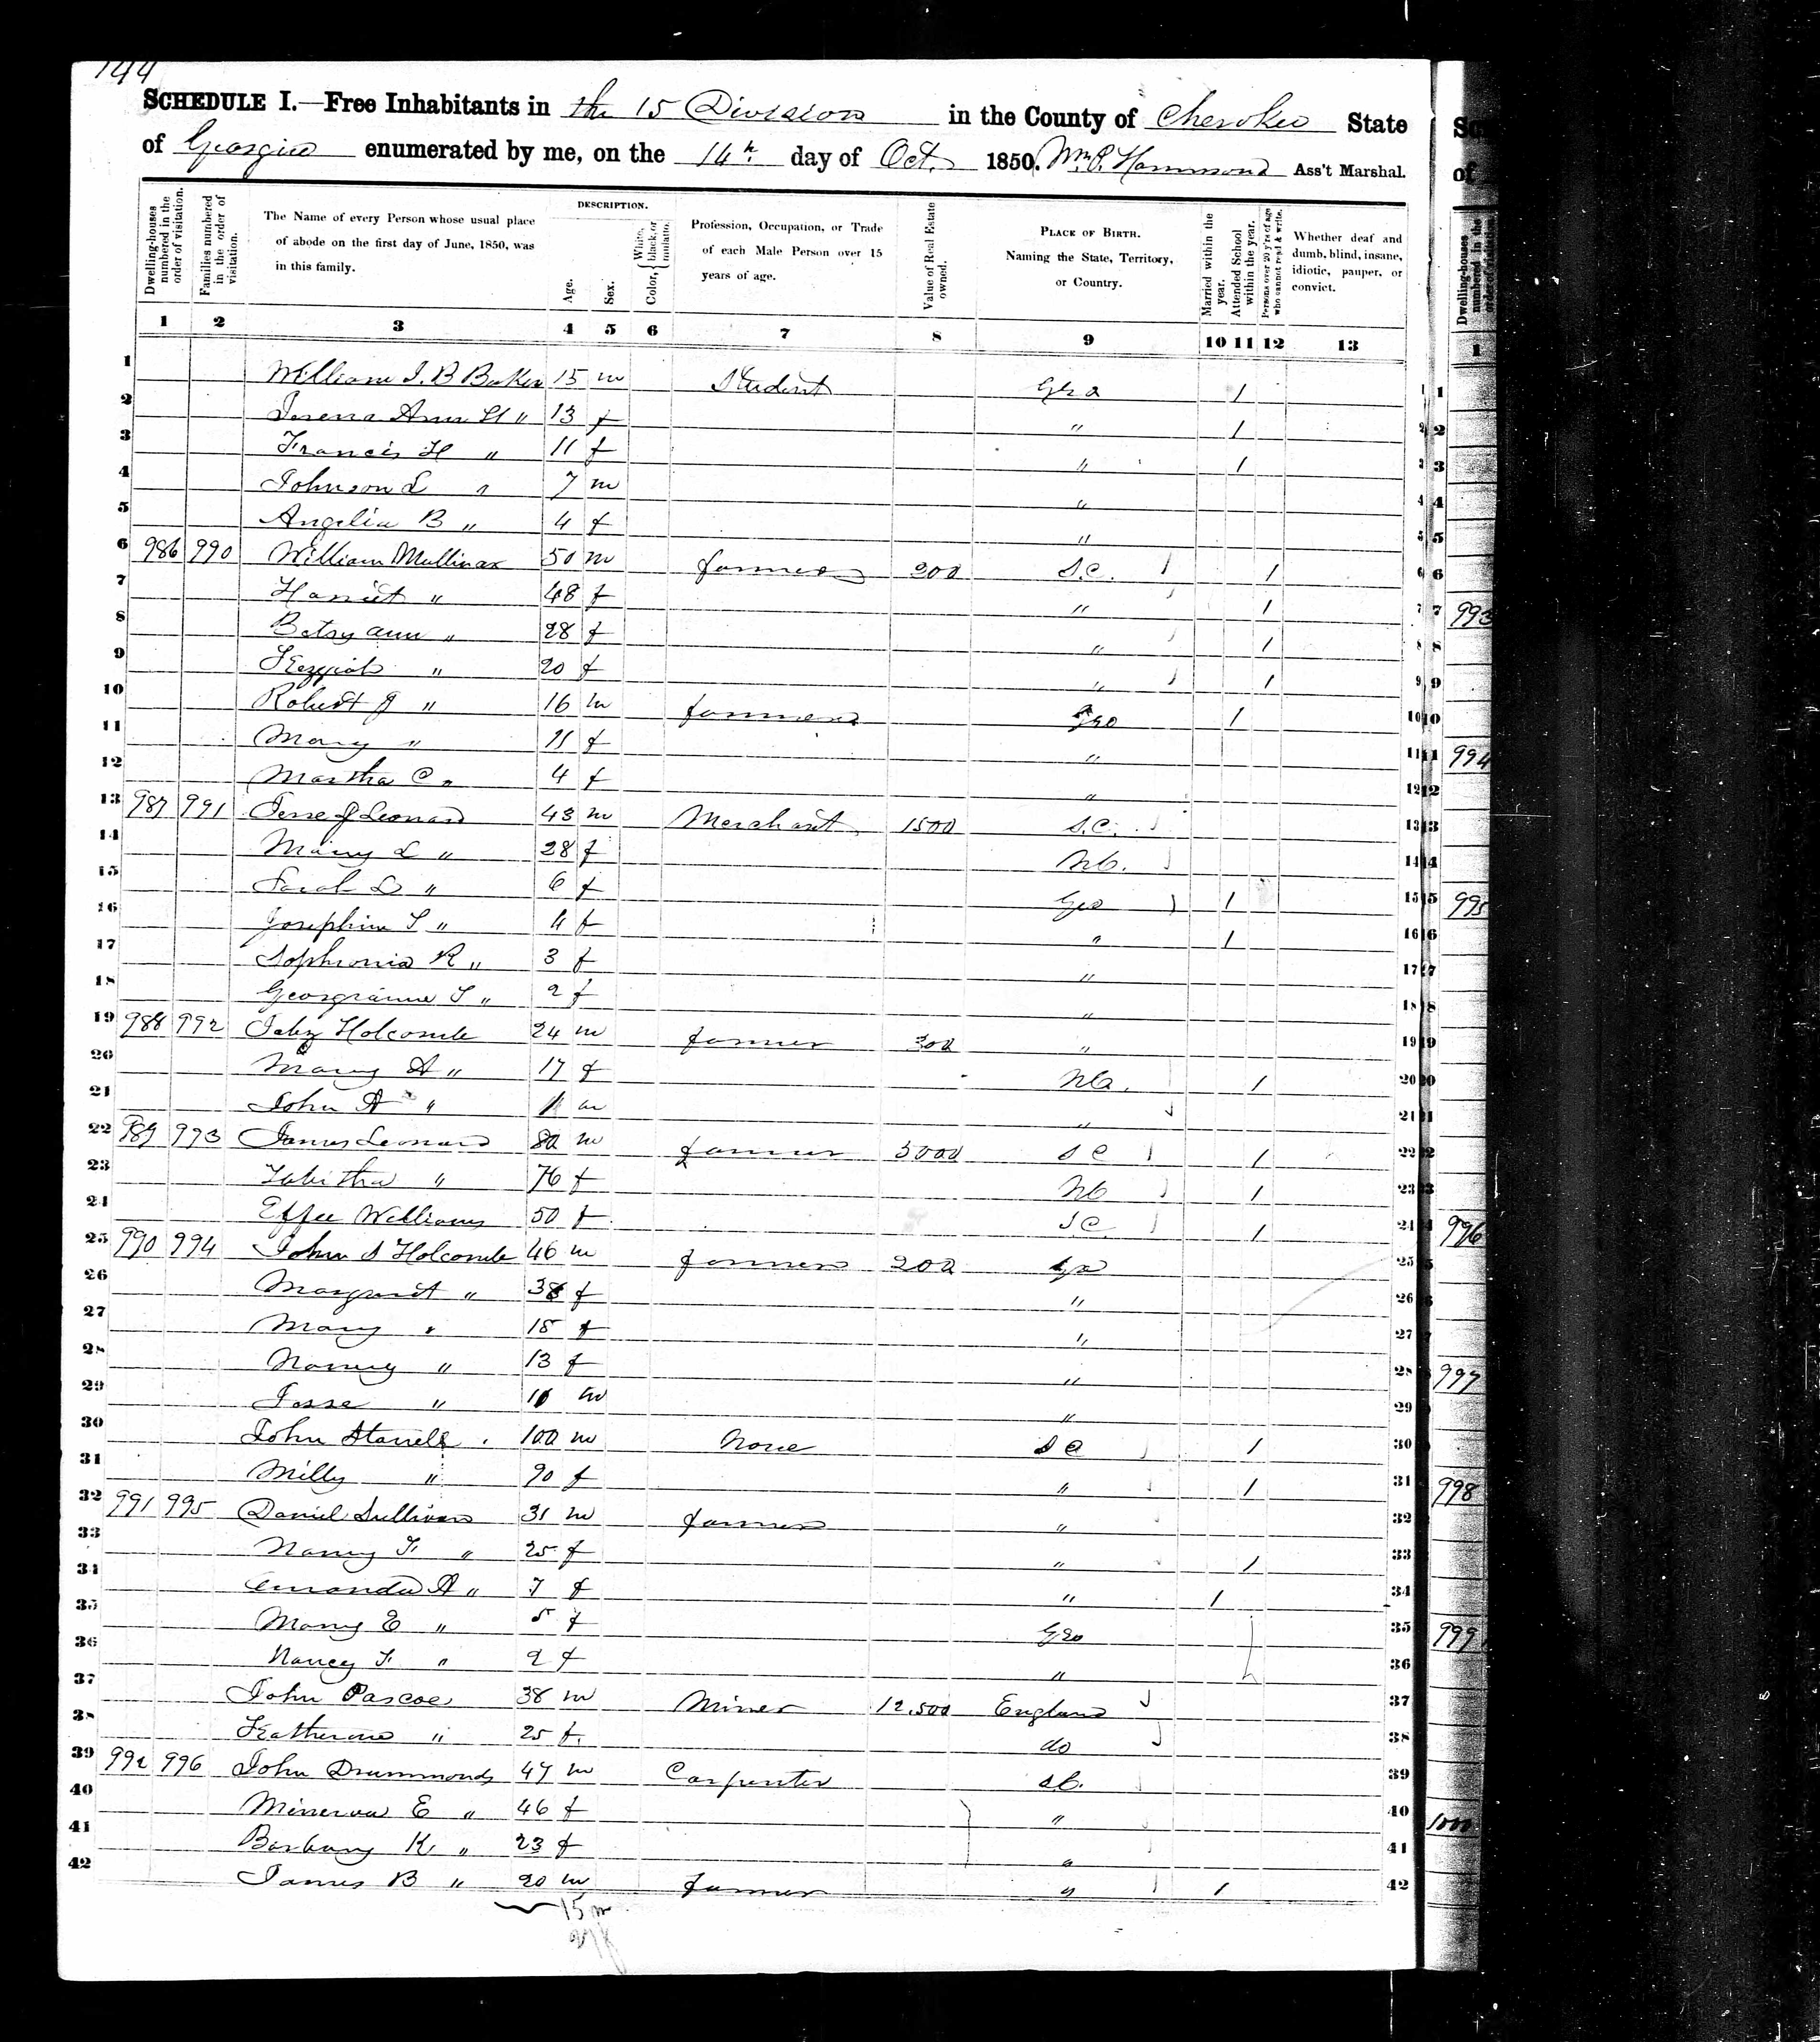 144
SCHEDULE I.—Free Inhabitants in the 15 Division in the County of Cherokee State
of Georgia enumerated by me, on the 16th day of Oct. 1850. Wm. P. Hammond Ass't Marshal.
Dwelling-houses numbered in the order of visitation.
Families numbered in the order of visitation.
The Name of every Person whose usual place of abode on the first day of June, 1850, was in this family.
DESCRIPTION.
Age.
Sex.
Color, { White, black, or mulatto.
Profession, Occupation, or Trade of each Male Person over 15 years of age.
Value of Real Estate owned.
PLACE OF BIRTH.
Naming the State, Territory, or Country.
Married within the year.
Attended School within the year.
Persons over 20 y'rs of age who cannot read & write.
Whether deaf and dumb, blind, insane, idiotic, pauper, or convict.
1 2 3 4 5 6 7 8 9 10 11 12 13
1 William J. B Baker 15 m Student Geo 1 1
2 Ann H " 13 f " 1 2
3 Francis H " 11 f " 1 3
4 Johnson L " 7 m " 4
5 Angelia B " 4 f " 5
6 986 990 William Mullinax 50 m farmer 200 S.C. 1 6
7 Harriet " 48 f " 1 7
8 Betsy ann " 28 f " 1 8
9 Kezziah " 20 f " 1 9
10 Robert J " 16 m farmer Geo 1 10
11 Mary " 11 f " 11
12 Martha C " 4 f " 12
13 987 991 Jesse J Leonard 43 m Merchant 1500 S.C. 13
14 Mary L " 28 f N C. 14
15 Sarah L " 6 f Geo 1 15
16 Josephine T " 4 f " 1 16
17 Sophronia R " 3 f " 17
18 Georgianna T " 2 f " 18
19 988 992 Jabez Holcomb 24 m farmer 300 " 19
20 Mary A " 17 f N C. 1 20
21 John A " 1 m " 21
22 989 993 James Leonard 80 m farmer 3000 S C 1 22
23 Tabitha " 76 f N C 1 23
24 Effee Williams 50 f S C 1 24
25 990 994 John S Holcomb 46 m farmer 200 Geo 25
26 Margaret " 38 f " 26
27 Mary " 15 f " 27
28 Nancy " 13 f " 28
29 Jesse " 10 m " 29
30 John 100 m None S C 1 30
31 Milly " 90 f " 1 31
32 991 995 Daniel Sullivan 31 m farmer " 32
33 Nancy F. " 25 f " 1 33
34 Amanda A " 7 f " 1 34
35 Mary E " 5 f Geo 35
36 Nancy F. " 2 f " 36
37 John Pascoe 38 m Miner 12,500 England 37
38 Katherine " 25 f. do 38
39 992 996 John Drummonds 47 m Carpenter S C. 39
40 Minerva E " 46 f " 40
41 Barbary K. " 23 f " 41
42 James B " 20 m farmer " 1 42
15 m
993
994
995
996
997
998
999
1000